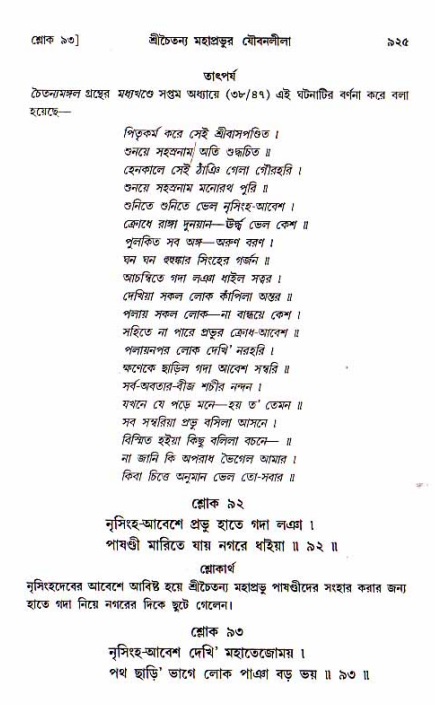 শ্লোক ৯৩]
শ্রীচৈতন্য মহাপ্রভুর যৌবনলীলা
৯২৫
তাৎপর্য
চৈতন্যমঙ্গল গ্রন্থের মধ্যখণ্ডে সপ্তম অধ্যায়ে (৩৮/৪৭) এই ঘটনাটির বর্ণনা করে বলা
হয়েছে—
পিতৃকর্ম করে সেই শ্রীবাসপণ্ডিত ।
শুনয়ে সহস্রনাম অতি শুদ্ধচিত ॥
হেনকালে সেই ঠাঁঞি গেলা গৌরহরি ।
শুনয়ে সহস্রনাম মনোরথ পুরি ॥
শুনিতে শুনিতে ভেল নৃসিংহ-আবেশ ।
ক্রোধে রাঙ্গা দুনয়ান—ঊর্দ্ধ্ব ভেল কেশ ॥
পুলকিত সব অঙ্গ—অরুণ বরণ ।
ঘন ঘন হুহুঙ্কার সিংহের গর্জন ॥
আচম্বিতে গদা লঞা ধাইল সত্বর ।
দেখিয়া সকল লোক কাঁপিলা অন্তর ॥
পলায় সকল লোক—না বান্ধয়ে কেশ ।
সহিতে না পারে প্রভুর ক্রোধ-আবেশ ॥
পলায়নপর লোক দেখি' নরহরি ।
ক্ষণেকে ছাড়িল গদা আবেশ সম্বরি ॥
সর্ব-অবতার-বীজ শচীর নন্দন ।
যখনে যে পড়ে মনে—হয় ত' তেমন ॥
সব সম্বরিয়া প্রভু বসিলা আসনে ।
বিস্মিত হইয়া কিছু বলিলা বচনে— ॥
না জানি কি অপরাধ ভৈগেল আমার ।
কিবা চিত্তে অনুমান ভেল তো-সবার ॥
শ্লোক ৯২
নৃসিংহ-আবেশে প্রভু হাতে গদা লঞা ।
পাষণ্ডী মারিতে যায় নগরে ধাইয়া ॥ ৯২ ॥
শ্লোকার্থ
নৃসিংহদেবের আবেশে আবিষ্ট হয়ে শ্রীচৈতন্য মহাপ্রভু পাষণ্ডীদের সংহার করার জন্য
হাতে গদা নিয়ে নগরের দিকে ছুটে গেলেন।
শ্লোক ৯৩
নৃসিংহ-আবেশ দেখি' মহাতেজোময় ।
পথ ছাড়ি' ভাগে লোক পাঞা বড় ভয় ॥ ৯৩ ॥